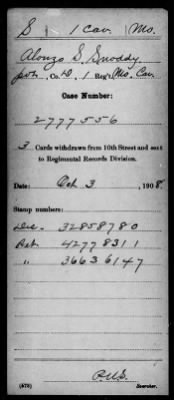 S 1 Cav. Mo.
Alonzo S. Snoddy
pvt., Co. D, 1 Reg't Mo. Cav.
Case Number:
2777556
3 Cards withdrawn from 10th Street and sent
to Regimental Records Division.
Date: Oct 3, 1908.
Stamp numbers:
32858780
42778311
" 36636147
(573) Searcher.